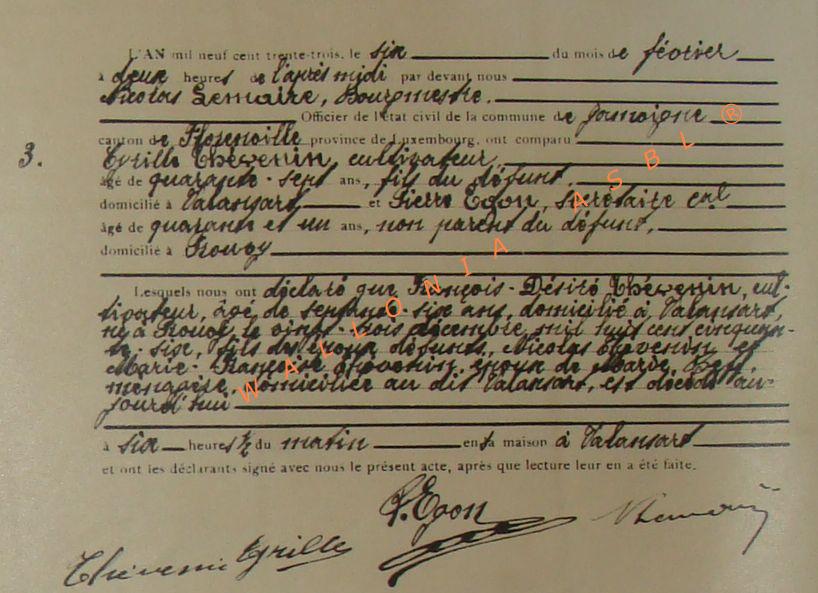 L'AN mil neuf cent trente-trois, le six du mois de février
à deux heures de l'après midi par devant nous
Nicolas Lemaire, Bourgmestre.
Officier de l'état civil de la commune de Jamoigne
canton de Florenville province de Luxembourg, ont comparu
3.
Cyrille Thévenin, cultivateur,
âgé de quarante-sept ans, fils du défunt,
domicilié à Valansart et Pierre Egon, secrétaire cal
âgé de quarante et un ans, non parent du défunt,
domicilié à Prouvy
Lesquels nous ont déclaré que François-Désiré Thévenin, cul-
tivateur, âgé de septante-six ans, domicilié à Valansart,
né à Prouvy le vingt-trois décembre mil huit cent cinquan-
te-six, fils des époux défunts, Nicolas Thévenin et
Marie-Françoise Thévenin, époux de Marie
ménagère, domiciliée au dit Valansart, est décédé au-
jourd'hui
à six heures ½ du matin en sa maison à Valansart
et ont les déclarants signé avec nous le présent acte, après que lecture leur en a été faite.
P. Egon
Thévenin Cyrille
WALLONIA ASBL ®